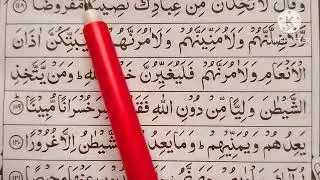 وَقَالَ لَاَتَّخِذَنَّ مِنْ عِبَادِكَ نَصِيْبًا مَّفْرُوْضًا ۱۱۸
وَّلَاُضِلَّنَّهُمْ وَلَاُمَنِّيَنَّهُمْ وَلَاٰمُرَنَّهُمْ اٰذَانَ
الْاَنْعَامِ وَلَاٰمُرَنَّهُمْ فَلَيُغَيِّرُنَّ خَلْقَ ؕ وَمَنْ يَّتَّخِذِ
الشَّيْطٰنَ وَلِيًّا مِّنْ دُوْنِ اللّٰهِ فَقَدْ خُسْرَانًا مُّبِيْنًا ۱۱۹
يَعِدُهُمْ وَيُمَنِّيْهِمْ ؕ وَمَا يَعِدُهُمُ الشَّيْطٰنُ اِلَّا غُرُوْرًا ۱۲۰